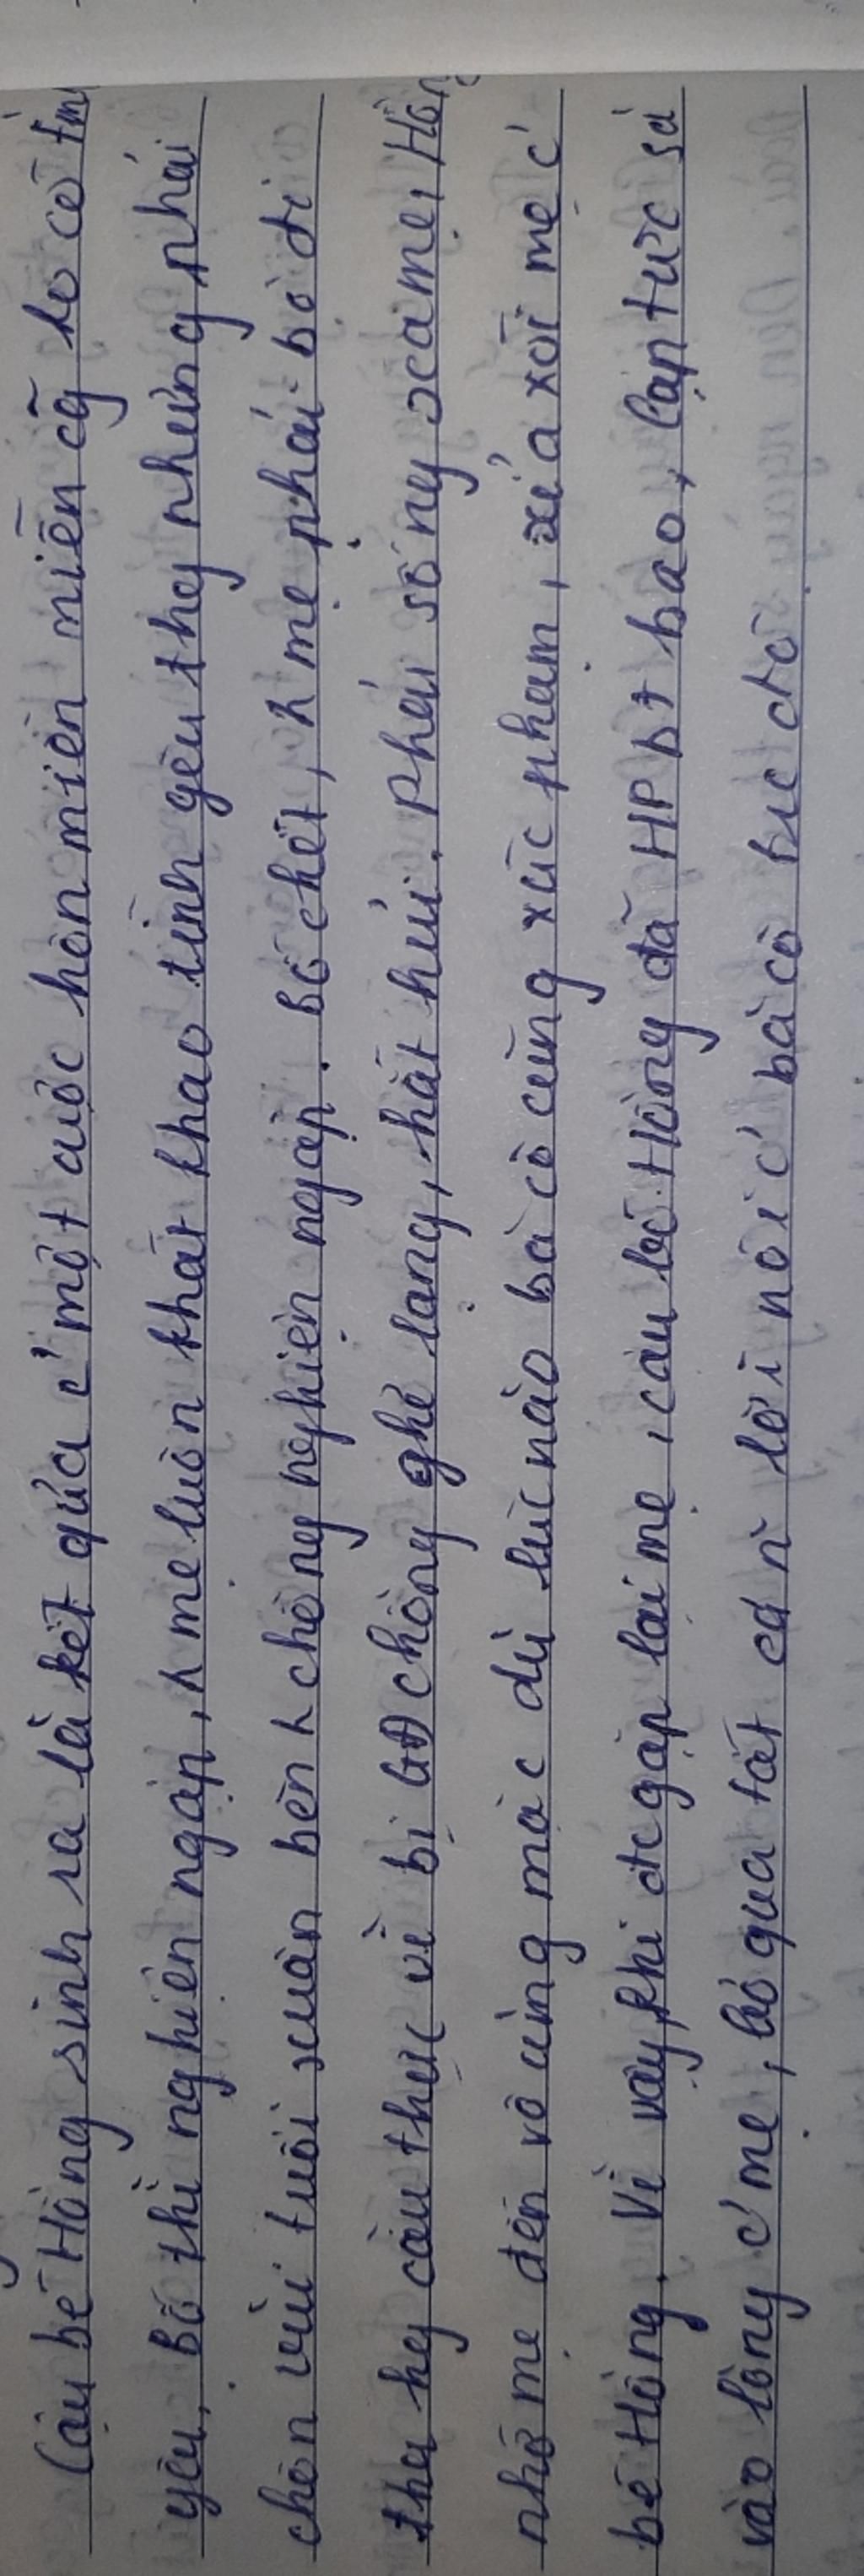 Cậu bé Hồng sinh ra là kết qủa c' một cuộc hôn miên miên miễn cg ko có tìn
yêu, Bố thì nghiện ngập, n mẹ luôn khát khao tình yêu thg nhưng phải
chôn vùi tuổi xuân bên n chồng nghiện ngập. Bố chết, n mẹ phải bỏ đi
tha hg cầu thực vì bị GĐ chồng ghẻ lạng, hắt hủi. Phải sống xa mẹ, Hồng
nhớ mẹ đến vô cùng mặc dù lúc nào bà cô cũng xúc phạm, xỉa xói mẹ c'
bé Hồng. Vì vậy, khi đc gặp lại mẹ, cậu bé Hồng đã HP bt bao, lập tức sà
vào lòng c' mẹ, bỏ qua tất cả n~ lời nói c' bà cô lúc đó